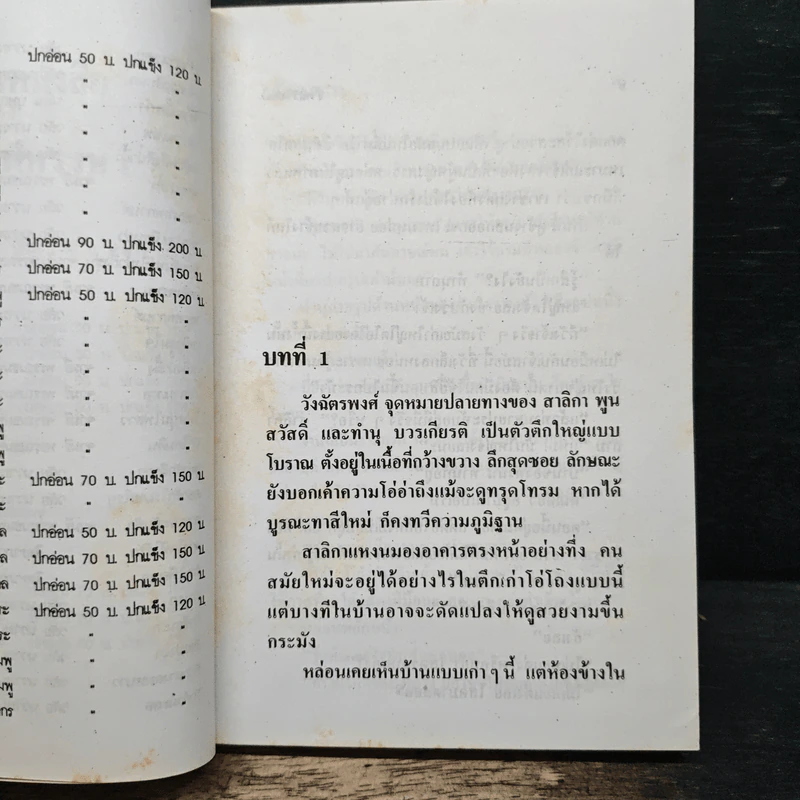 ปกอ่อน 50 บ. ปกแข็ง 120 บ
"       "
"       "
"       "
"       "
"       "
"       "
ปกอ่อน 90 บ. ปกแข็ง 200 บ
ปกอ่อน 70 บ. ปกแข็ง 150 บ
ปกอ่อน 50 บ. ปกแข็ง 120 บ
"       "
"       "
"       "
"       "
"       "
"       "
ปกอ่อน 70 บ. ปกแข็ง 150 บ
"       "
ปกอ่อน 50 บ. ปกแข็ง 120 บ
ปกอ่อน 70 บ. ปกแข็ง 150 บ
ปกอ่อน 70 บ. ปกแข็ง 150 บ
ปกอ่อน 50 บ. ปกแข็ง 120 บ
"       "
"       "
"       "
"       "
บทที่ 1
วังฉัตรพงศ์ จุดหมายปลายทางของ สาลิกา พูน
สวัสดิ์ และทำนุ บวรเกียรติ เป็นตัวตึกใหญ่แบบ
โบราณ ตั้งอยู่ในเนื้อที่กว้างขวาง ลึกสุดซอย ลักษณะ
ยังบอกเค้าความโอ่อ่าถึงแม้จะดูทรุดโทรม หากได้
บูรณะทาสีใหม่ ก็คงทวีความภูมิฐาน
สาลิกาแหงนมองอาคารตรงหน้าอย่างทึ่ง คน
สมัยใหม่จะอยู่ได้อย่างไรในตึกเก่าโอ่โถงแบบนี้
แต่บางทีในบ้านอาจจะดัดแปลงให้ดูสวยงามขึ้น
กระมัง
หล่อนเคยเห็นบ้านแบบเก่า ๆ นี้ แต่ห้องข้างใน